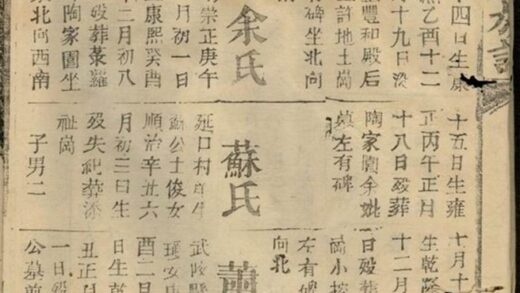 十四日生康
熙乙酉十二
月十九日没
豐和殿后
許地土崗
有碑坐北向
余氏
崇正庚午
月初一日
康熙癸酉
二月初八
歿葬菉羅
陶家園坐
東北向西南
十五日生雍
正丙午正月
十八日歿葬
陶家園余妣
墓左有碑
蘇氏
延口村
公士俊女
順治辛丑六
月初三日生
歿失紀葬添
祉崗
子男二
十月十
生乾隆
十二月
日歿葬
崗小
左有
向北
蕭
武陵縣
安
酉二月
日生乾
丑正月
一日歿
公墓前